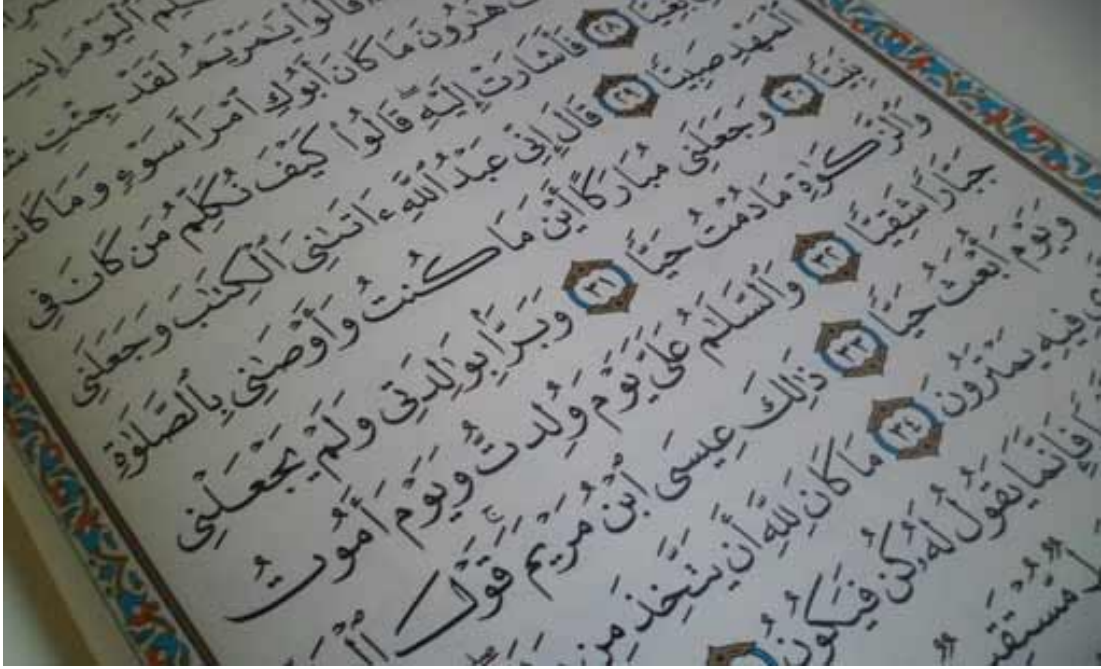 ٱلْيَوْمَ
قَالُوا۟ يَـٰمَرْيَمُ لَقَدْ جِئْتِ
هَـٰرُونَ مَا كَانَ أَبُوكِ ٱمْرَأَ سَوْءٍ وَمَا كَانَتْ
بَغِيًّا ٢٨ فَأَشَارَتْ إِلَيْهِ ۖ قَالُوا۟ كَيْفَ نُكَلِّمُ مَن كَانَ فِى
ٱلْمَهْدِ صَبِيًّا ٢٩ قَالَ إِنِّى عَبْدُ ٱللَّهِ ءَاتَىٰنِىَ ٱلْكِتَـٰبَ وَجَعَلَنِى
نَبِيًّا ٣٠ وَجَعَلَنِى مُبَارَكًا أَيْنَ مَا كُنتُ وَأَوْصَـٰنِى بِٱلصَّلَوٰةِ
وَٱلزَّكَوٰةِ مَا دُمْتُ حَيًّا ٣١ وَبَرًّۢا بِوَٰلِدَتِى وَلَمْ يَجْعَلْنِى
جَبَّارًا شَقِيًّا ٣٢ وَٱلسَّلَـٰمُ عَلَىَّ يَوْمَ وُلِدتُّ وَيَوْمَ أَمُوتُ
وَيَوْمَ أُبْعَثُ حَيًّا ٣٣ ذَٰلِكَ عِيسَى ٱبْنُ مَرْيَمَ ۚ قَوْلَ
فِيهِ يَمْتَرُونَ ٣٤ مَا كَانَ لِلَّهِ أَن يَتَّخِذَ مِن
فَإِنَّمَا يَقُولُ لَهُۥ كُن فَيَكُونُ